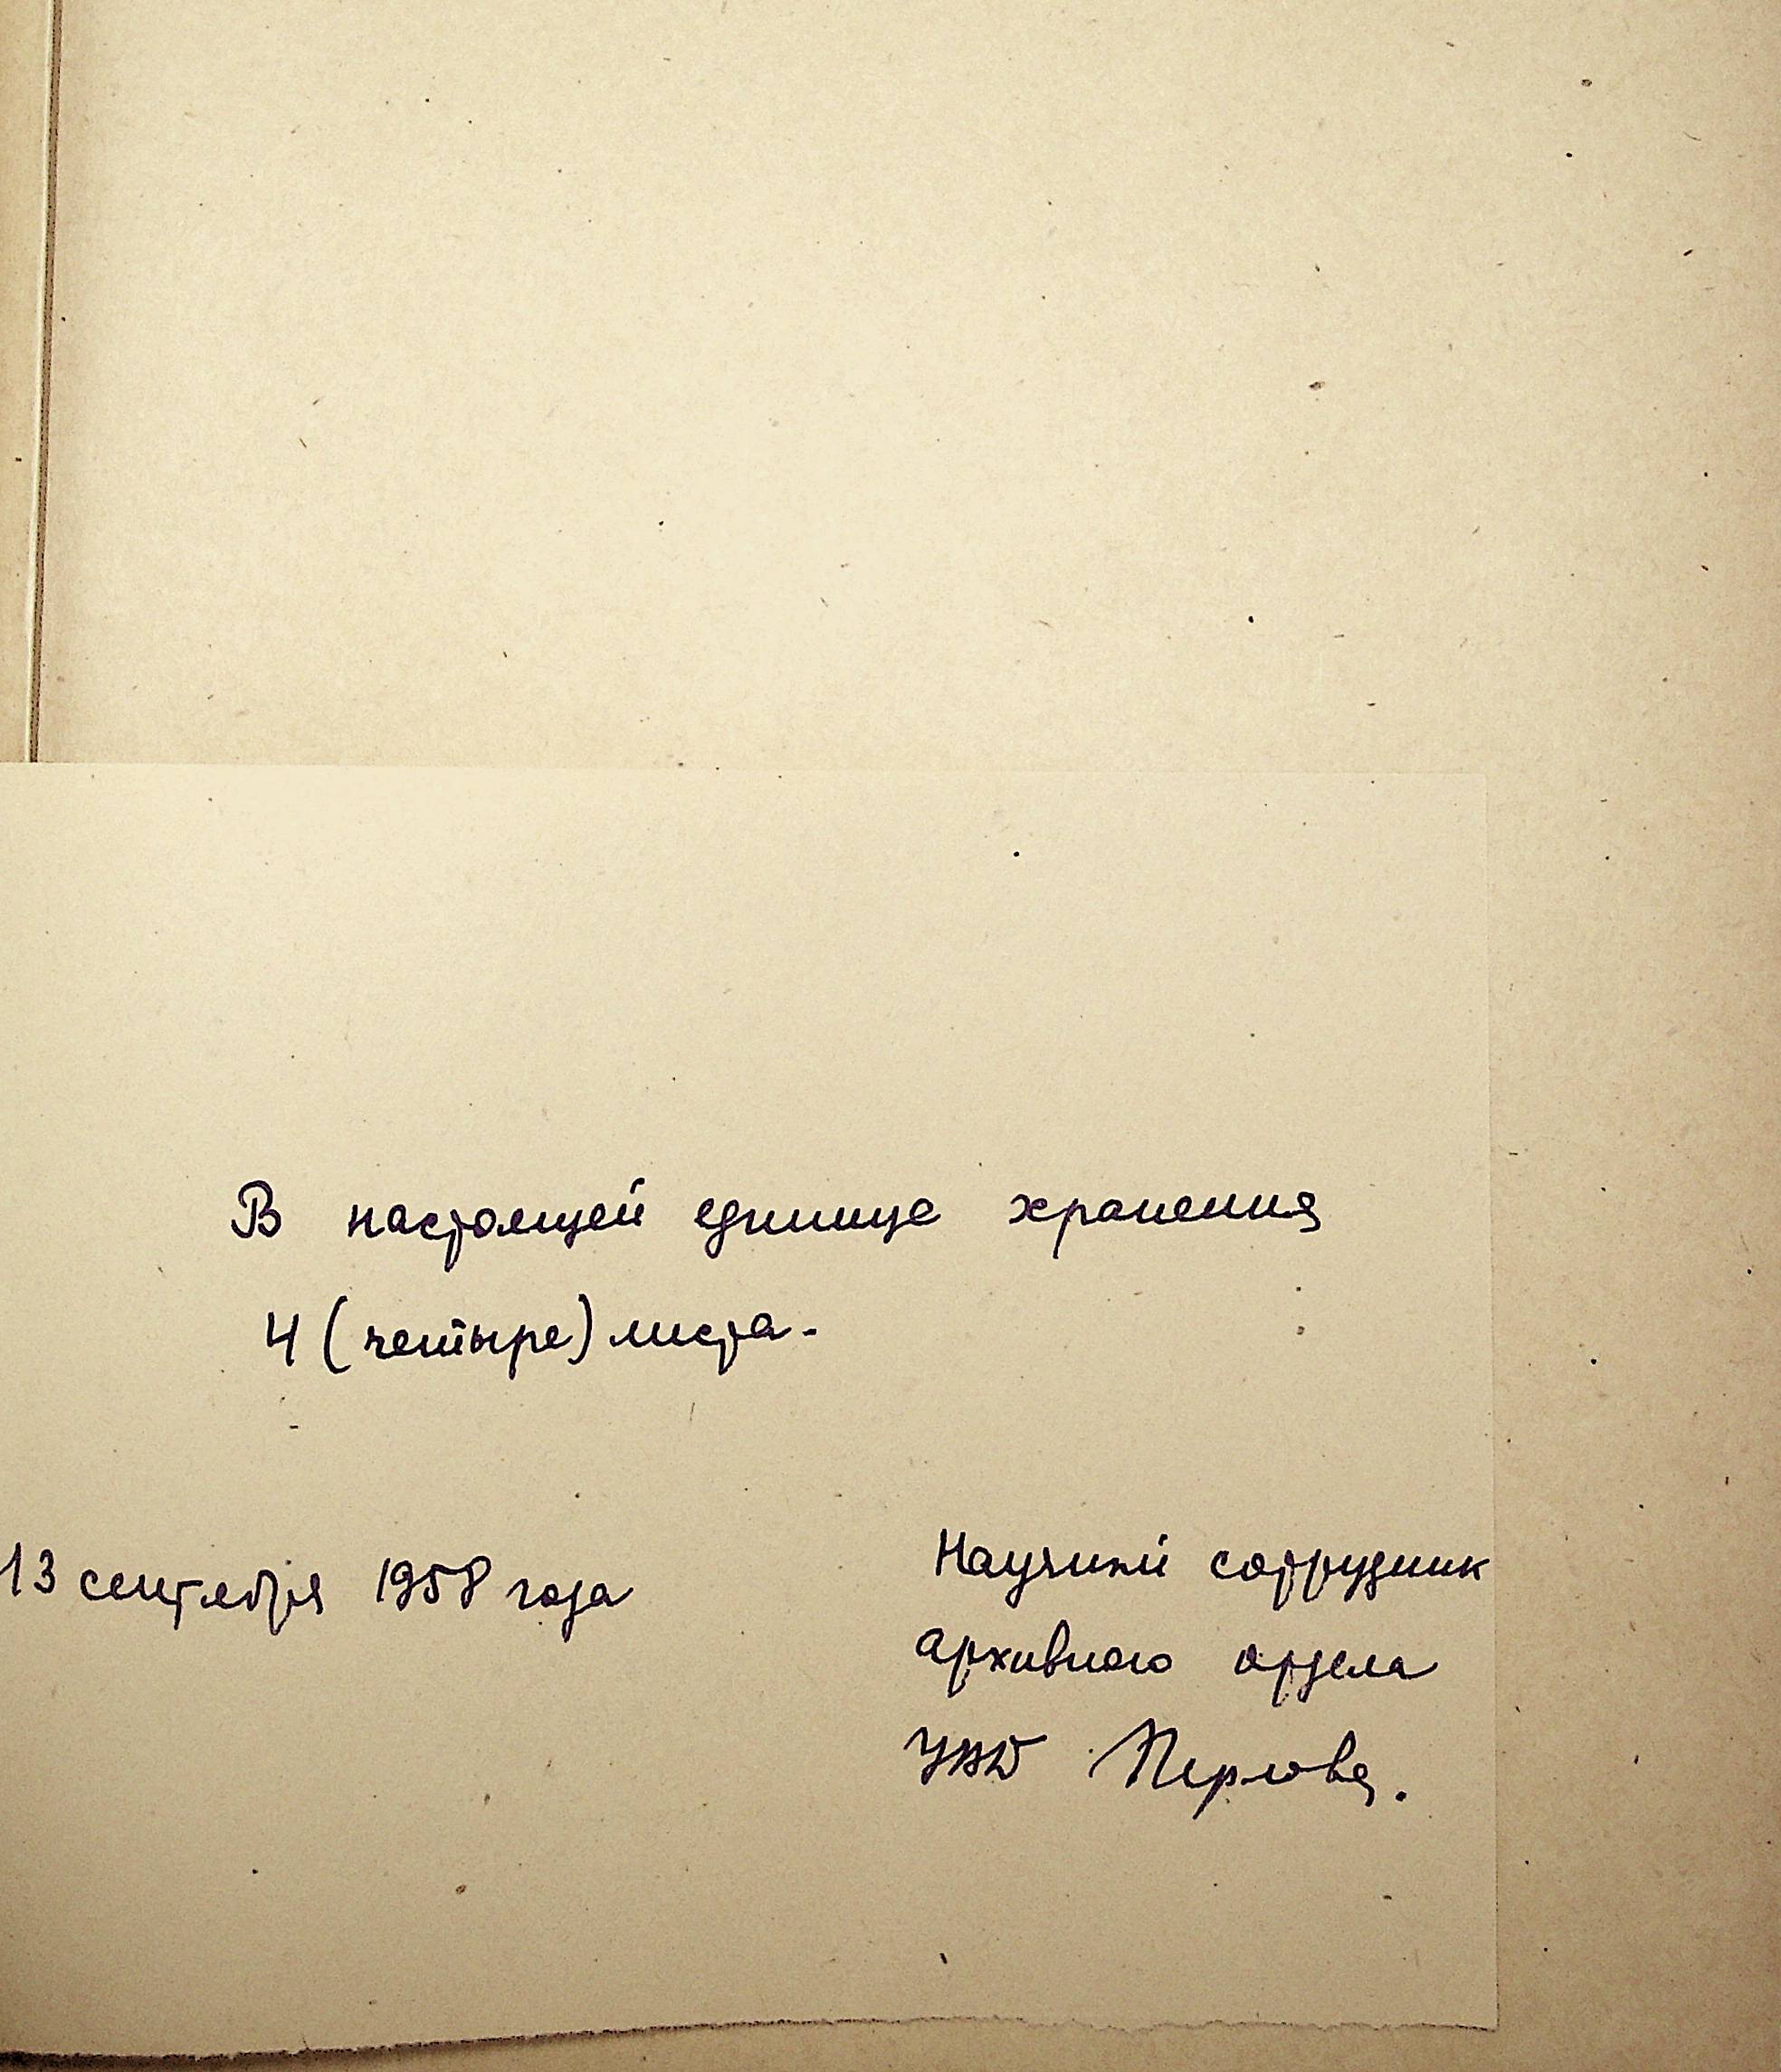 В настоящей единице хранения
4 (четыре) листа.
13 сентября 1958 года
Научный сотрудник
архивного отдела
Перлова.